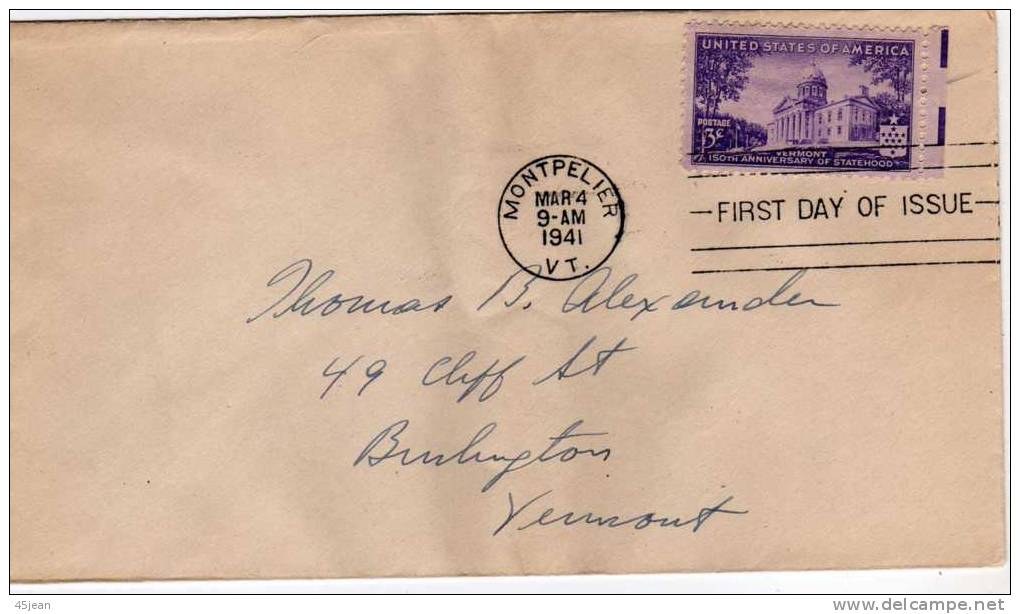 UNITED STATES OF AMERICA
POSTAGE
3¢
VERMONT
150TH ANNIVERSARY OF STATEHOOD
MONTPELIER
MAR 4
9-AM
1941
VT.
FIRST DAY OF ISSUE
Thomas B. Alexander
49 Cliff St
Burlington
Vermont
45jean
www.delcampe.net